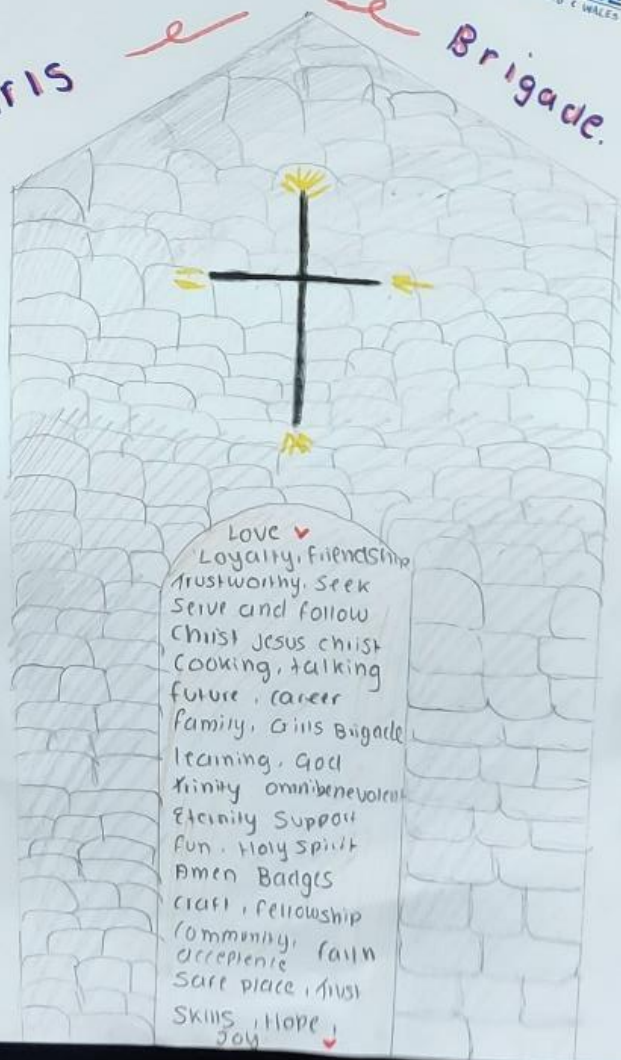 & WALES
rls Brigade.
Love
Loyalty, Friendship
Trustworthy. Seek
Serve and follow
Christ Jesus Christ
Cooking, talking
future, career
family, Girls Brigade
learning, God
Trinity omnibenevolent
Eternity Support
fun. Holy Spirit
Amen Badges
craft, fellowship
Community, faith
acceptence
Safe place, Trust
Skills, Hope,
Joy